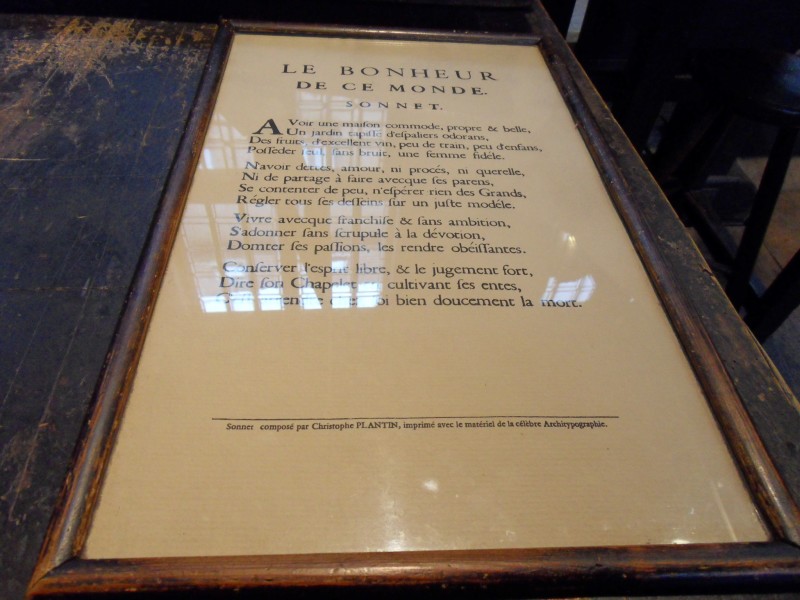 LE BONHEUR
DE CE MONDE.
SONNET.
AVoir une maiſon commode, propre & belle,
Un jardin tapiſſé d'eſpaliers odorans,
Des fruits, d'excellent vin, peu de train, peu d'enfans,
Poſſeder ſeul, ſans bruit, une femme fidéle.
N'avoir dettes, amour, ni procés, ni querelle,
Ni de partage à faire avecque ſes parens,
Se contenter de peu, n'eſpérer rien des Grands,
Régler tous ſes deſſeins ſur un juſte modéle.
Vivre avecque franchiſe & ſans ambition,
S'adonner ſans ſcrupule à la dévotion,
Domter ſes paſſions, les rendre obéiſſantes.
Conſerver l'eſprit libre, & le jugement fort,
Dire ſon Chapelet en cultivant ſes entes,
C'eſt attendre chez ſoi bien doucement la mort.
Sonnet composé par Christophe PLANTIN, imprimé avec le matériel de la célèbre Architypographie.